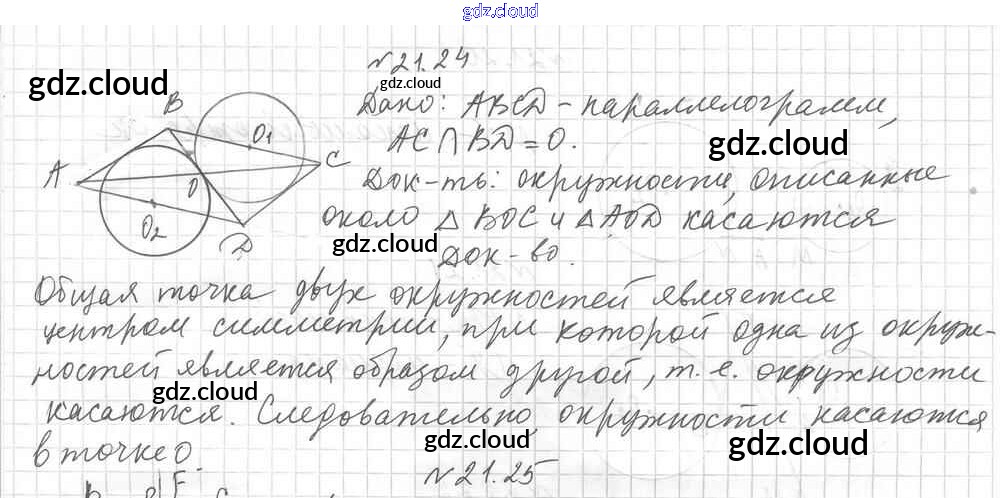 gdz.cloud
№21.24
gdz.cloud
gdz.cloud
Дано: ABCD - параллелограмм,
AC∩BD=O.
gdz.cloud
Док-ть: окружности, описанные
около △BOC и △AOD касаются
gdz.cloud
gdz.cloud
Док-во.
B
O1
C
A
O
O2
D
Общая точка двух окружностей является
центром симметрии, при которой одна из окруж-
ностей является образом другой, т.е. окружности
gdz.cloud
gdz.cloud
касаются. Следовательно, окружности касаются
в точке O.
gdz.cloud
gdz.cloud
№21.25